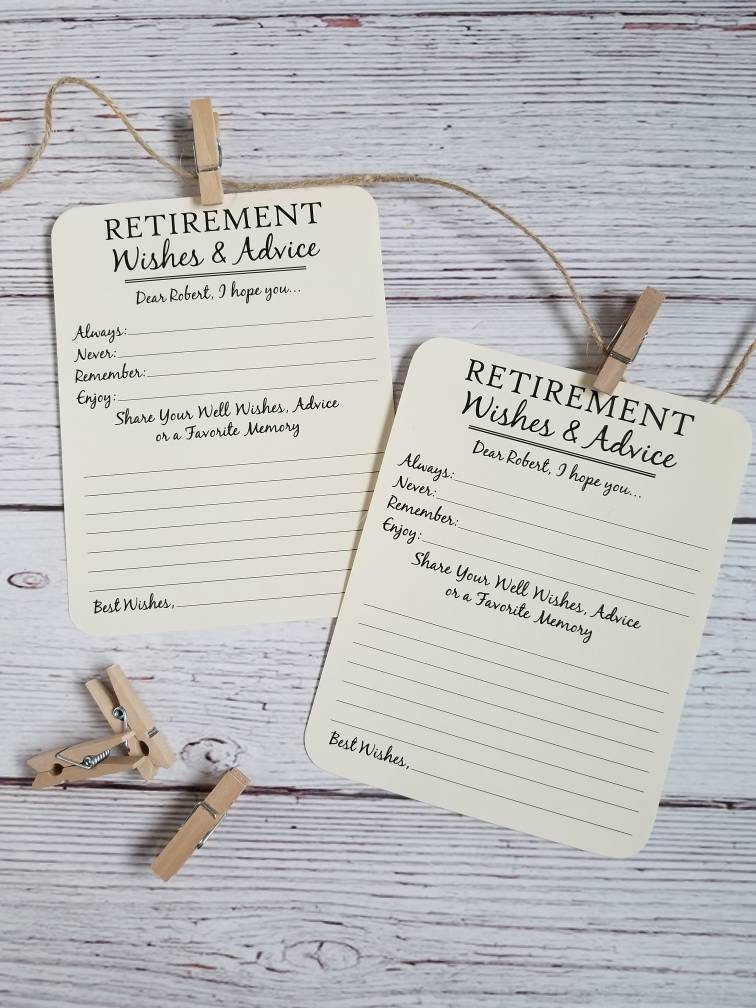 RETIREMENT
Wishes & Advice
Dear Robert, I hope you...
Always:
Never:
Remember:
Enjoy:
Share Your Well Wishes, Advice
or a Favorite Memory
Best Wishes,
RETIREMENT
Wishes & Advice
Dear Robert, I hope you...
Always:
Never:
Remember:
Enjoy:
Share Your Well Wishes, Advice
or a Favorite Memory
Best Wishes,